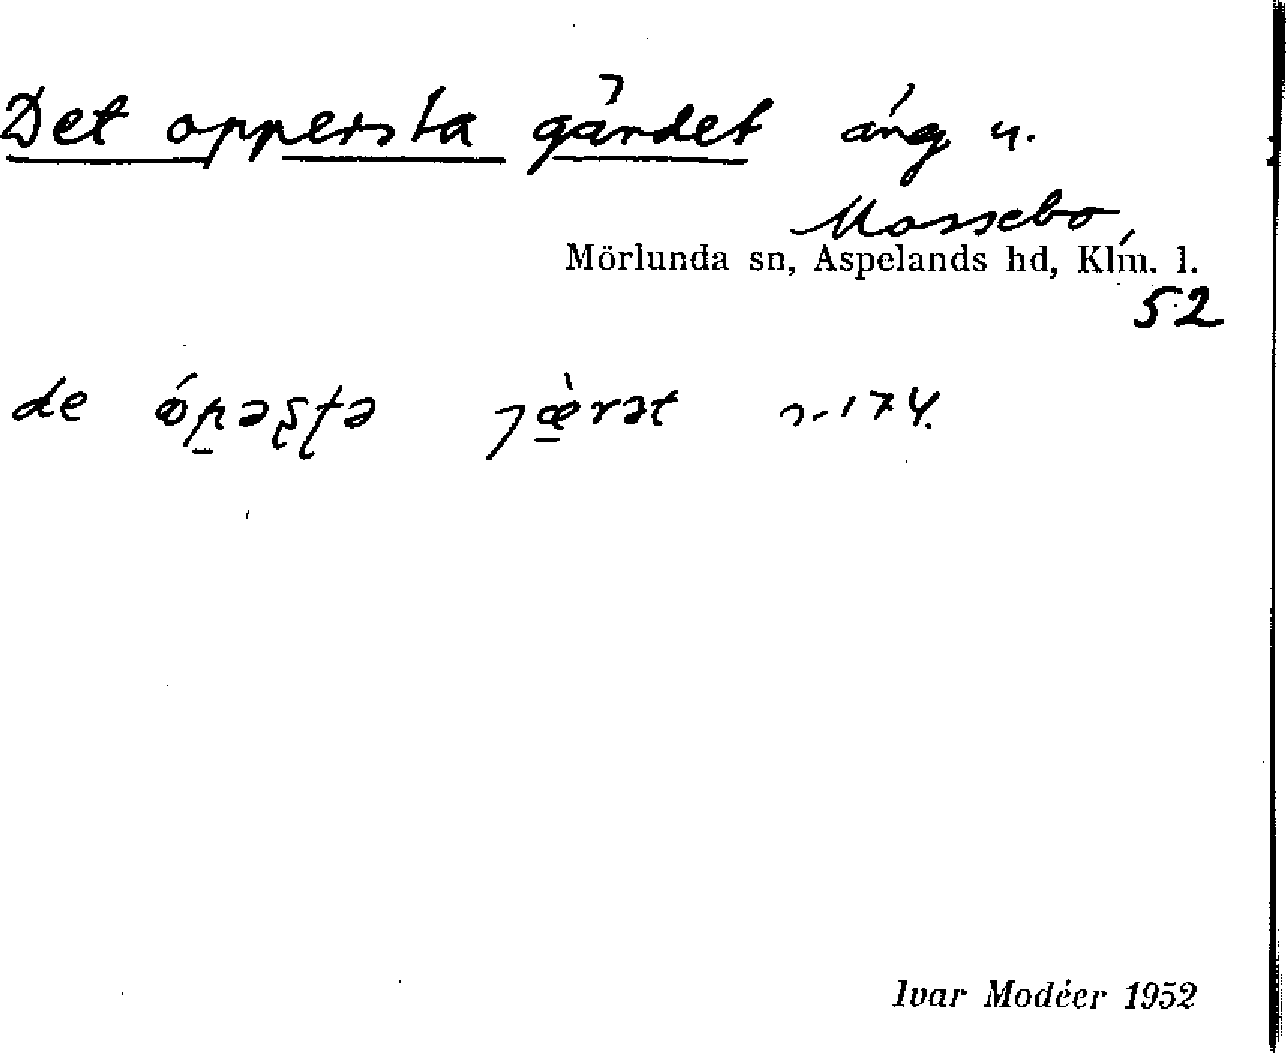 Det oppersta gärdet äng u.
Mossebo
Mörlunda sn, Aspelands hd, Klm. l.
52
de ǿpəʂʈə ɟæ̀rət n-174.
Ivar Modéer 1952